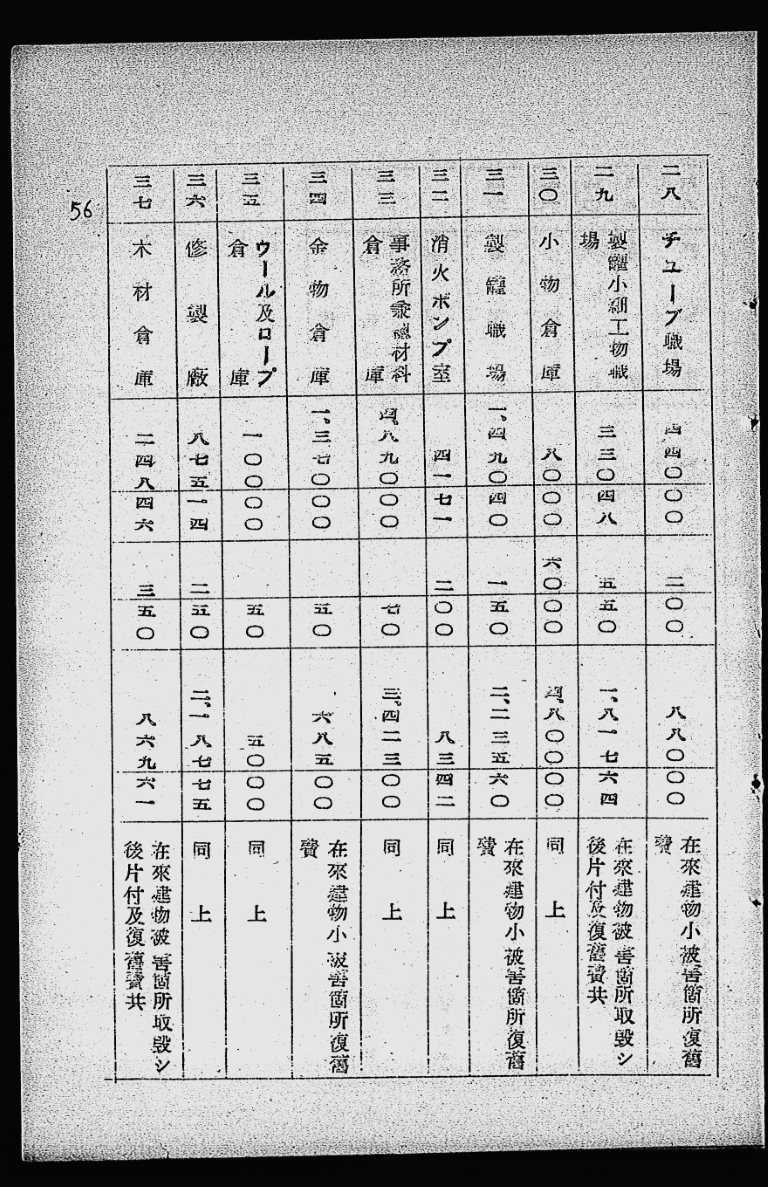 56
二八
チューブ職場
四四〇〇〇
二〇〇
八八〇〇〇
在來建物小被害箇所復舊
費
二九
製罐小細工物職
場
三三〇四八
五五〇
一、八一七六四
在來建物被害箇所取毀シ
後片付及復舊費共
三〇
小物倉庫
八〇〇〇
六〇〇〇
四、八〇〇〇〇
同上
三一
製罐職場
一、四九〇四〇
一五〇
二、二三五六〇
在來建物小被害箇所復舊
費
三二
消火ポンプ室
四一七一
二〇〇
八三四二
同上
三三
事務所材料
倉庫
四、八九〇〇〇
七〇
三、四二三〇〇
同上
三四
金物倉庫
一、三七〇〇〇
五〇
六八五〇〇
在來建物小被害箇所復舊
費
三五
ウール及ロープ
倉庫
一〇〇〇〇
五〇
五〇〇〇
同上
三六
修製廠
八七五一四
二五〇
二、一八七七五
同上
三七
木材倉庫
二四八四六
三五〇
八六九六一
在來建物被害箇所取毀シ
後片付及復舊費共